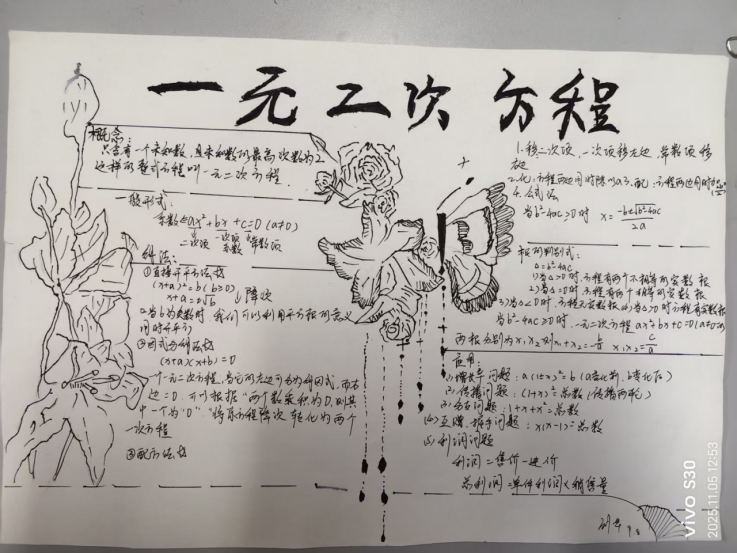 一元二次方程
概念:
只含有一个未知数,且未知数的最高次数为2
这样的整式方程叫一元二次方程.
一般形式:
系数←ax²+bx+c=0(a≠0)
二次项 一次项系数 常数项
解法:
①直接开平方法
(x+a)²=b(b≥0)
x+a=±√b ↓降次
当b为负数时 我们可以利用平方根的意义
同时开平方
②因式分解法
(x+a)(x+b)=0
一个一元二次方程,当它的左边可分为解因式,而右
边=0.可以根据"两个数乘积为0,则其
中一个为"0""将原方程降次 转化为两个
一次方程
③配方法
1.移:二次项,一次项移左边,常数项移
右边
2.化:方程两边同时除以a 3.配:方程两边同时
4.公式法
当b²-4ac≥0时 x=-b±√b²-4ac/2a
根的判别式:
△=b²-4ac
1)当△>0时.方程有两个不相等的实数根
2)当△=0时.方程有两个相等的实数根
3)当△<0时.方程无实数根(4)当△≥0时方程有实数根
当b²-4ac≥0时.一元二次方程ax²+bx+c=0(a≠0)
两根分别为x₁,x₂则x₁+x₂=-b/a x₁x₂=c/a
应用:
(1)增长率问题:a(1±x)²=b(a变化前,b变化后)
(2)传播问题:(1+x)²=总数(传播两轮)
(3)分支问题:1+x+x²=总数
(4)互赠 握手问题:x(x-1)=总数
(5)利润问题
利润=售价-进价
总利润=单件利润×销售量
vivo S30
2025.11.05 12:53